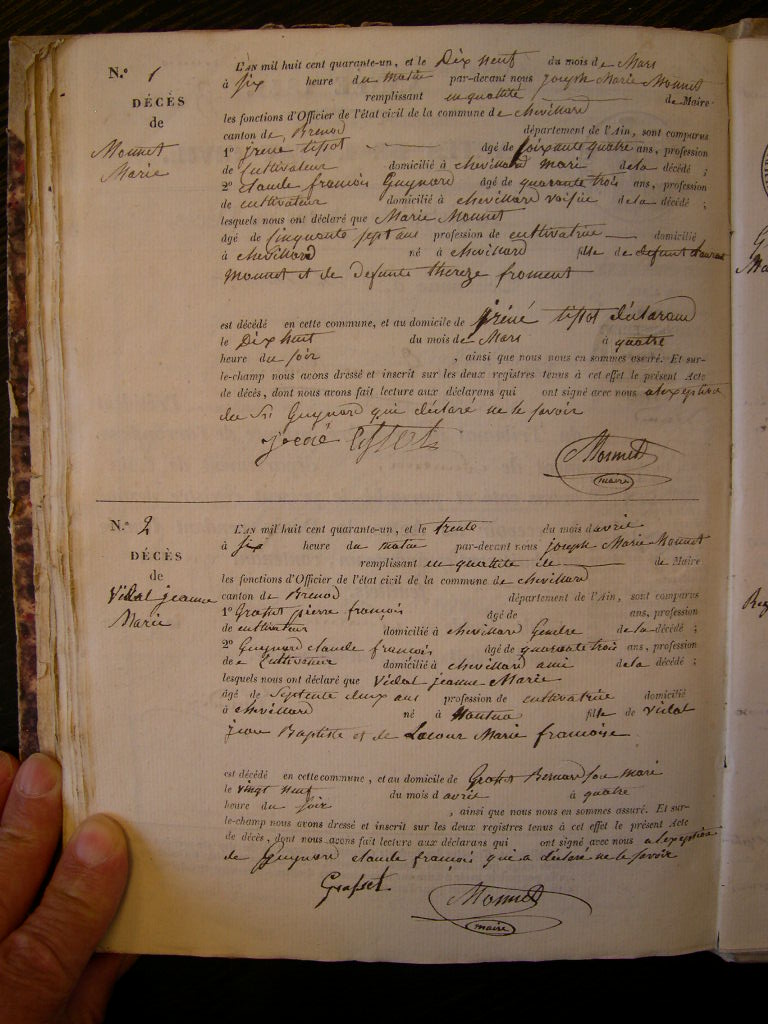 N.o 1
DÉCÈS
de
Monnet
Marie
L'AN mil huit cent quarante-un, et le Dix neuf du mois de Mars
à six heure du matin par-devant nous joseph Marie Monnet
remplissant en qualité de Maire
les fonctions d'Officier de l'état civil de la commune de chevillard
canton de Brenod département de l'Ain, sont comparus
1o jréné tissot âgé de soixante quatre ans, profession
de cultivateur domicilié à chevillard mari de la décédé ;
2o claude francois Guynard âgé de quarante trois ans, profession
de cultivateur domicilié à chevillard voisin de la décédé ;
lesquels nous ont déclaré que Marie Monnet
âgé de cinquante sept ans profession de cultivatrice domicilié
à chevillard né à chevillard fille de defunt
Monnet et de defunte thereze froment
est décédé en cette commune, et au domicile de jréné tissot déclarant
le Dix huit du mois de Mars à quatre
heure du soir , ainsi que nous nous en sommes assuré. Et sur-
le-champ nous avons dressé et inscrit sur les deux registres tenus à cet effet le présent Acte
de décès, dont nous avons fait lecture aux déclarans qui ont signé avec nous a lexeption
du Sr Guynard qui a déclaré ne le savoir
Tissot
Monnet
maire
N.o 2
DÉCÈS
de
Vidal jeanne
Marie
L'AN mil huit cent quarante-un, et le trente du mois d avril
à six heure du matin par-devant nous joseph Marie Monnet
remplissant en quallité de de Maire
les fonctions d'Officier de l'état civil de la commune de chevillard
canton de Brenod département de l'Ain, sont comparus
1o Grosset pierre françois âgé de ans, profession
de cultivateur domicilié à chevillard Gendre de la décédé ;
2o Guynard claude francois âgé de quarante trois ans, profession
de Cultivateur domicilié à chevillard ami de la décédé ;
lesquels nous ont déclaré que Vidal jeanne Marie
âgé de septente deux ans profession de cultivatrice domicilié
à chevillard né à Nantua fille de vidal
jean Baptiste et de Lacour Marie francoise
est décédé en cette commune, et au domicile de Grosset Bernard son mari
le vingt neuf du mois d avril à quatre
heure du soir , ainsi que nous nous en sommes assuré. Et sur-
le-champ nous avons dressé et inscrit sur les deux registres tenus à cet effet le présent Acte
de décès, dont nous avons fait lecture aux déclarans qui ont signé avec nous a lexeption
de Guynard claude françois qui a déclaré ne le savoir
Grosset
Monnet
maire